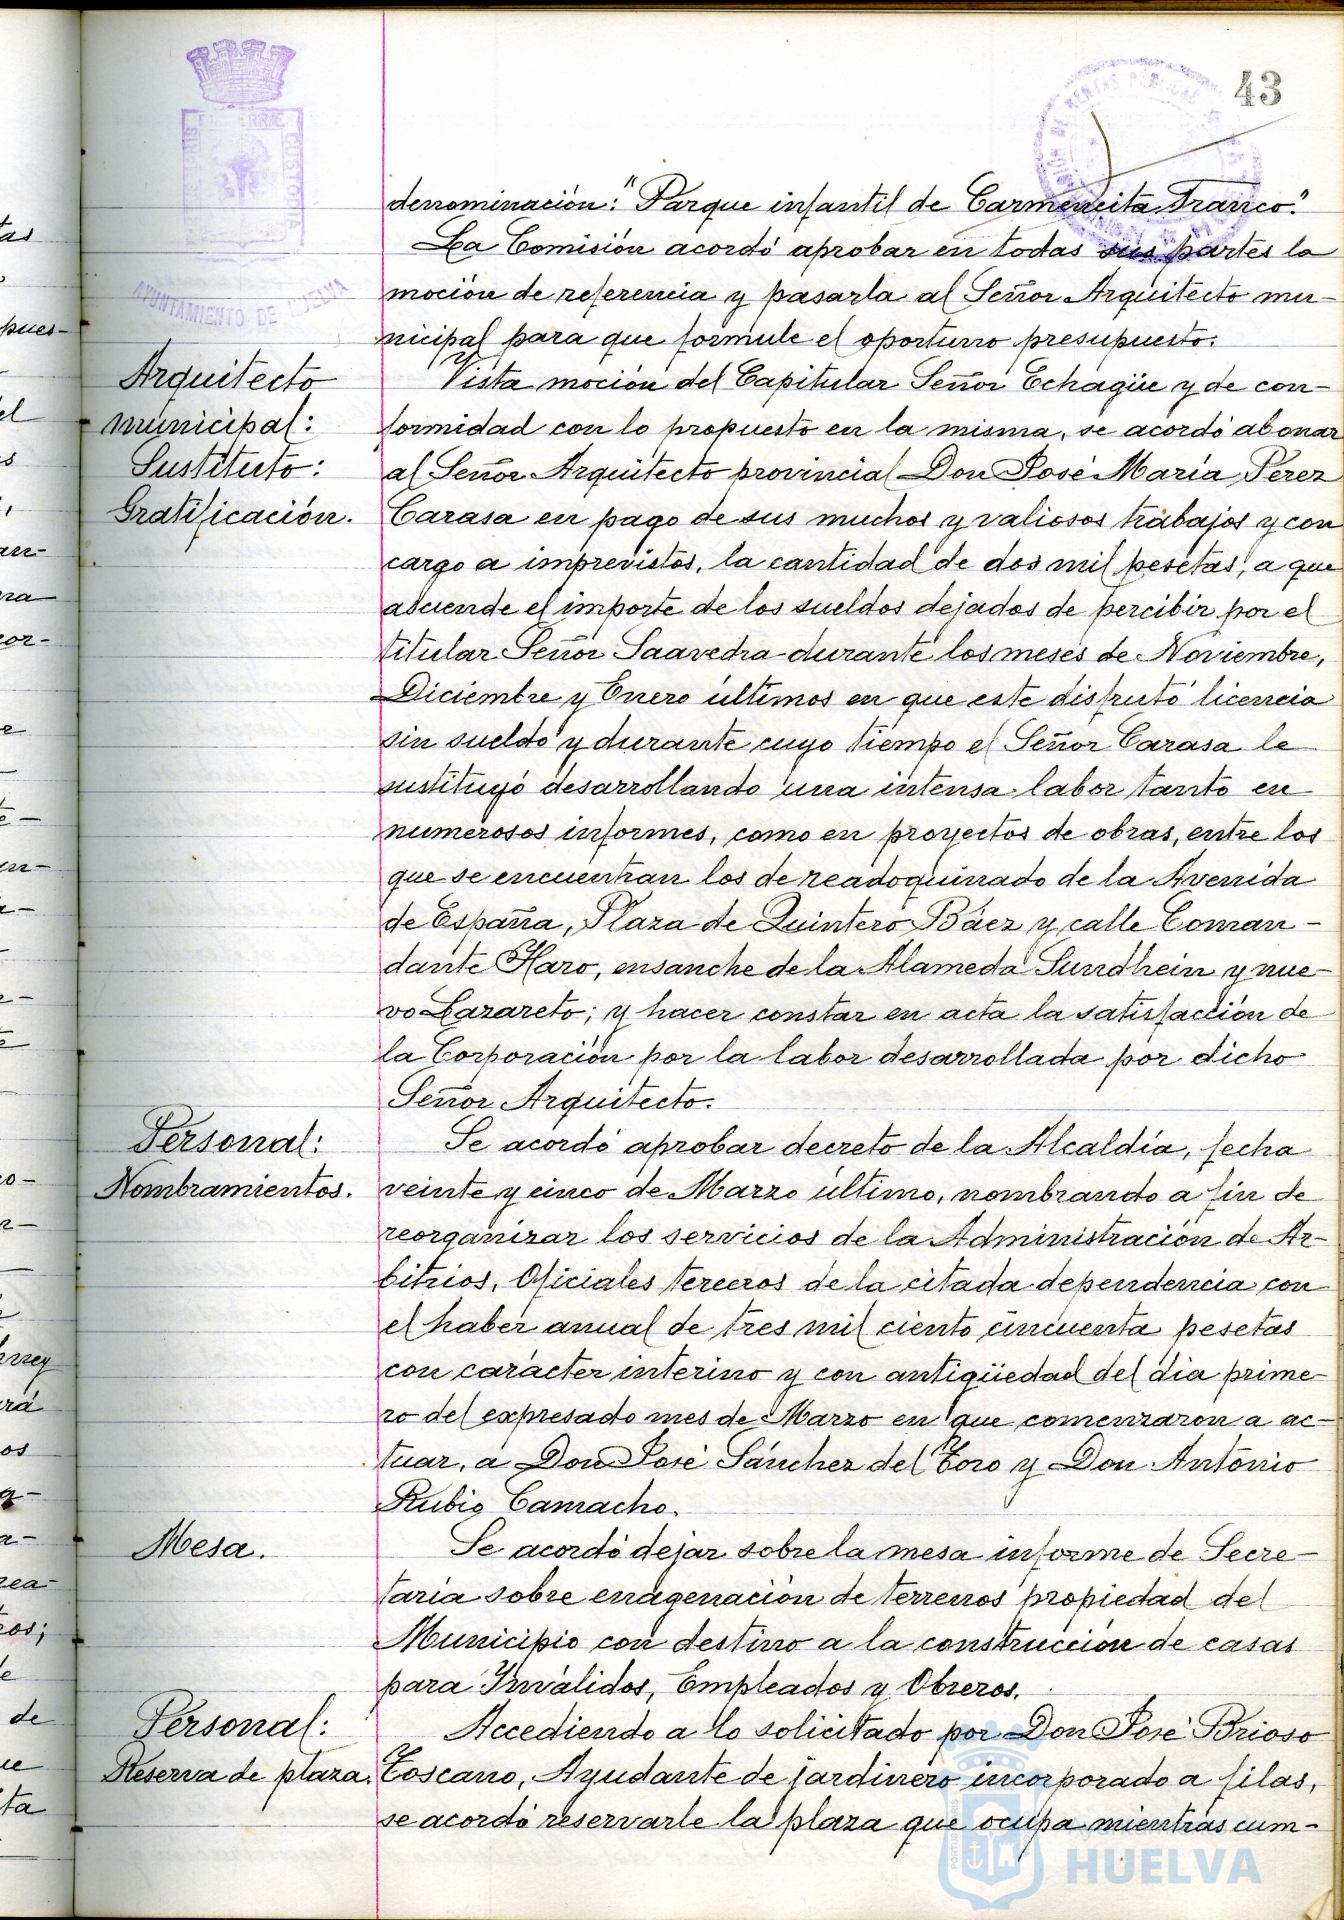 43
AYUNTAMIENTO DE HUELVA
denominación: "Parque infantil de Carmencita Franco."
La Comisión acordó aprobar en todas sus partes la
moción de referencia y pasarla al Señor Arquitecto mu-
nicipal para que formule el oportuno presupuesto.
Arquitecto
municipal:
Sustituto:
Gratificación.
Vista moción del Capitular Señor Echagüe y de con-
formidad con lo propuesto en la misma, se acordó abonar
al Señor Arquitecto provincial Don José María Pérez
Carasa en pago de sus muchos y valiosos trabajos y con
cargo a imprevistos, la cantidad de dos mil pesetas, a que
asciende el importe de los sueldos dejados de percibir por el
titular Señor Saavedra durante los meses de Noviembre,
Diciembre y Enero últimos en que este disfrutó licencia
sin sueldo y durante cuyo tiempo el Señor Carasa le
sustituyó desarrollando una intensa labor tanto en
numerosos informes, como en proyectos de obras, entre los
que se encuentran los de readoquinado de la Avenida
de España, Plaza de Quintero Báez y calle Coman-
dante Haro, ensanche de la Alameda Sundhein y nue-
vo Lazareto; y hacer constar en acta la satisfacción de
la Corporación por la labor desarrollada por dicho
Señor Arquitecto.
Personal:
Nombramientos.
Se acordó aprobar decreto de la Alcaldía, fecha
veinte y cinco de Marzo último, nombrando a fin de
reorganizar los servicios de la Administración de Ar-
bitrios, Oficiales terceros de la citada dependencia con
el haber anual de tres mil ciento cincuenta pesetas
con carácter interino y con antigüedad del día prime-
ro del expresado mes de Marzo en que comenzaron a ac-
tuar, a Don José Sánchez del Toro y Don Antonio
Rubio Camacho.
Mesa.
Se acordó dejar sobre la mesa informe de Secre-
taría sobre enagenación de terrenos propiedad del
Municipio con destino a la construcción de casas
para Inválidos, Empleados y Obreros.
Personal:
Reserva de plaza.
Accediendo a lo solicitado por Don José Brioso
Toscano, Ayudante de jardinero incorporado a filas,
se acordó reservarle la plaza que ocupa mientras cum-
HUELVA